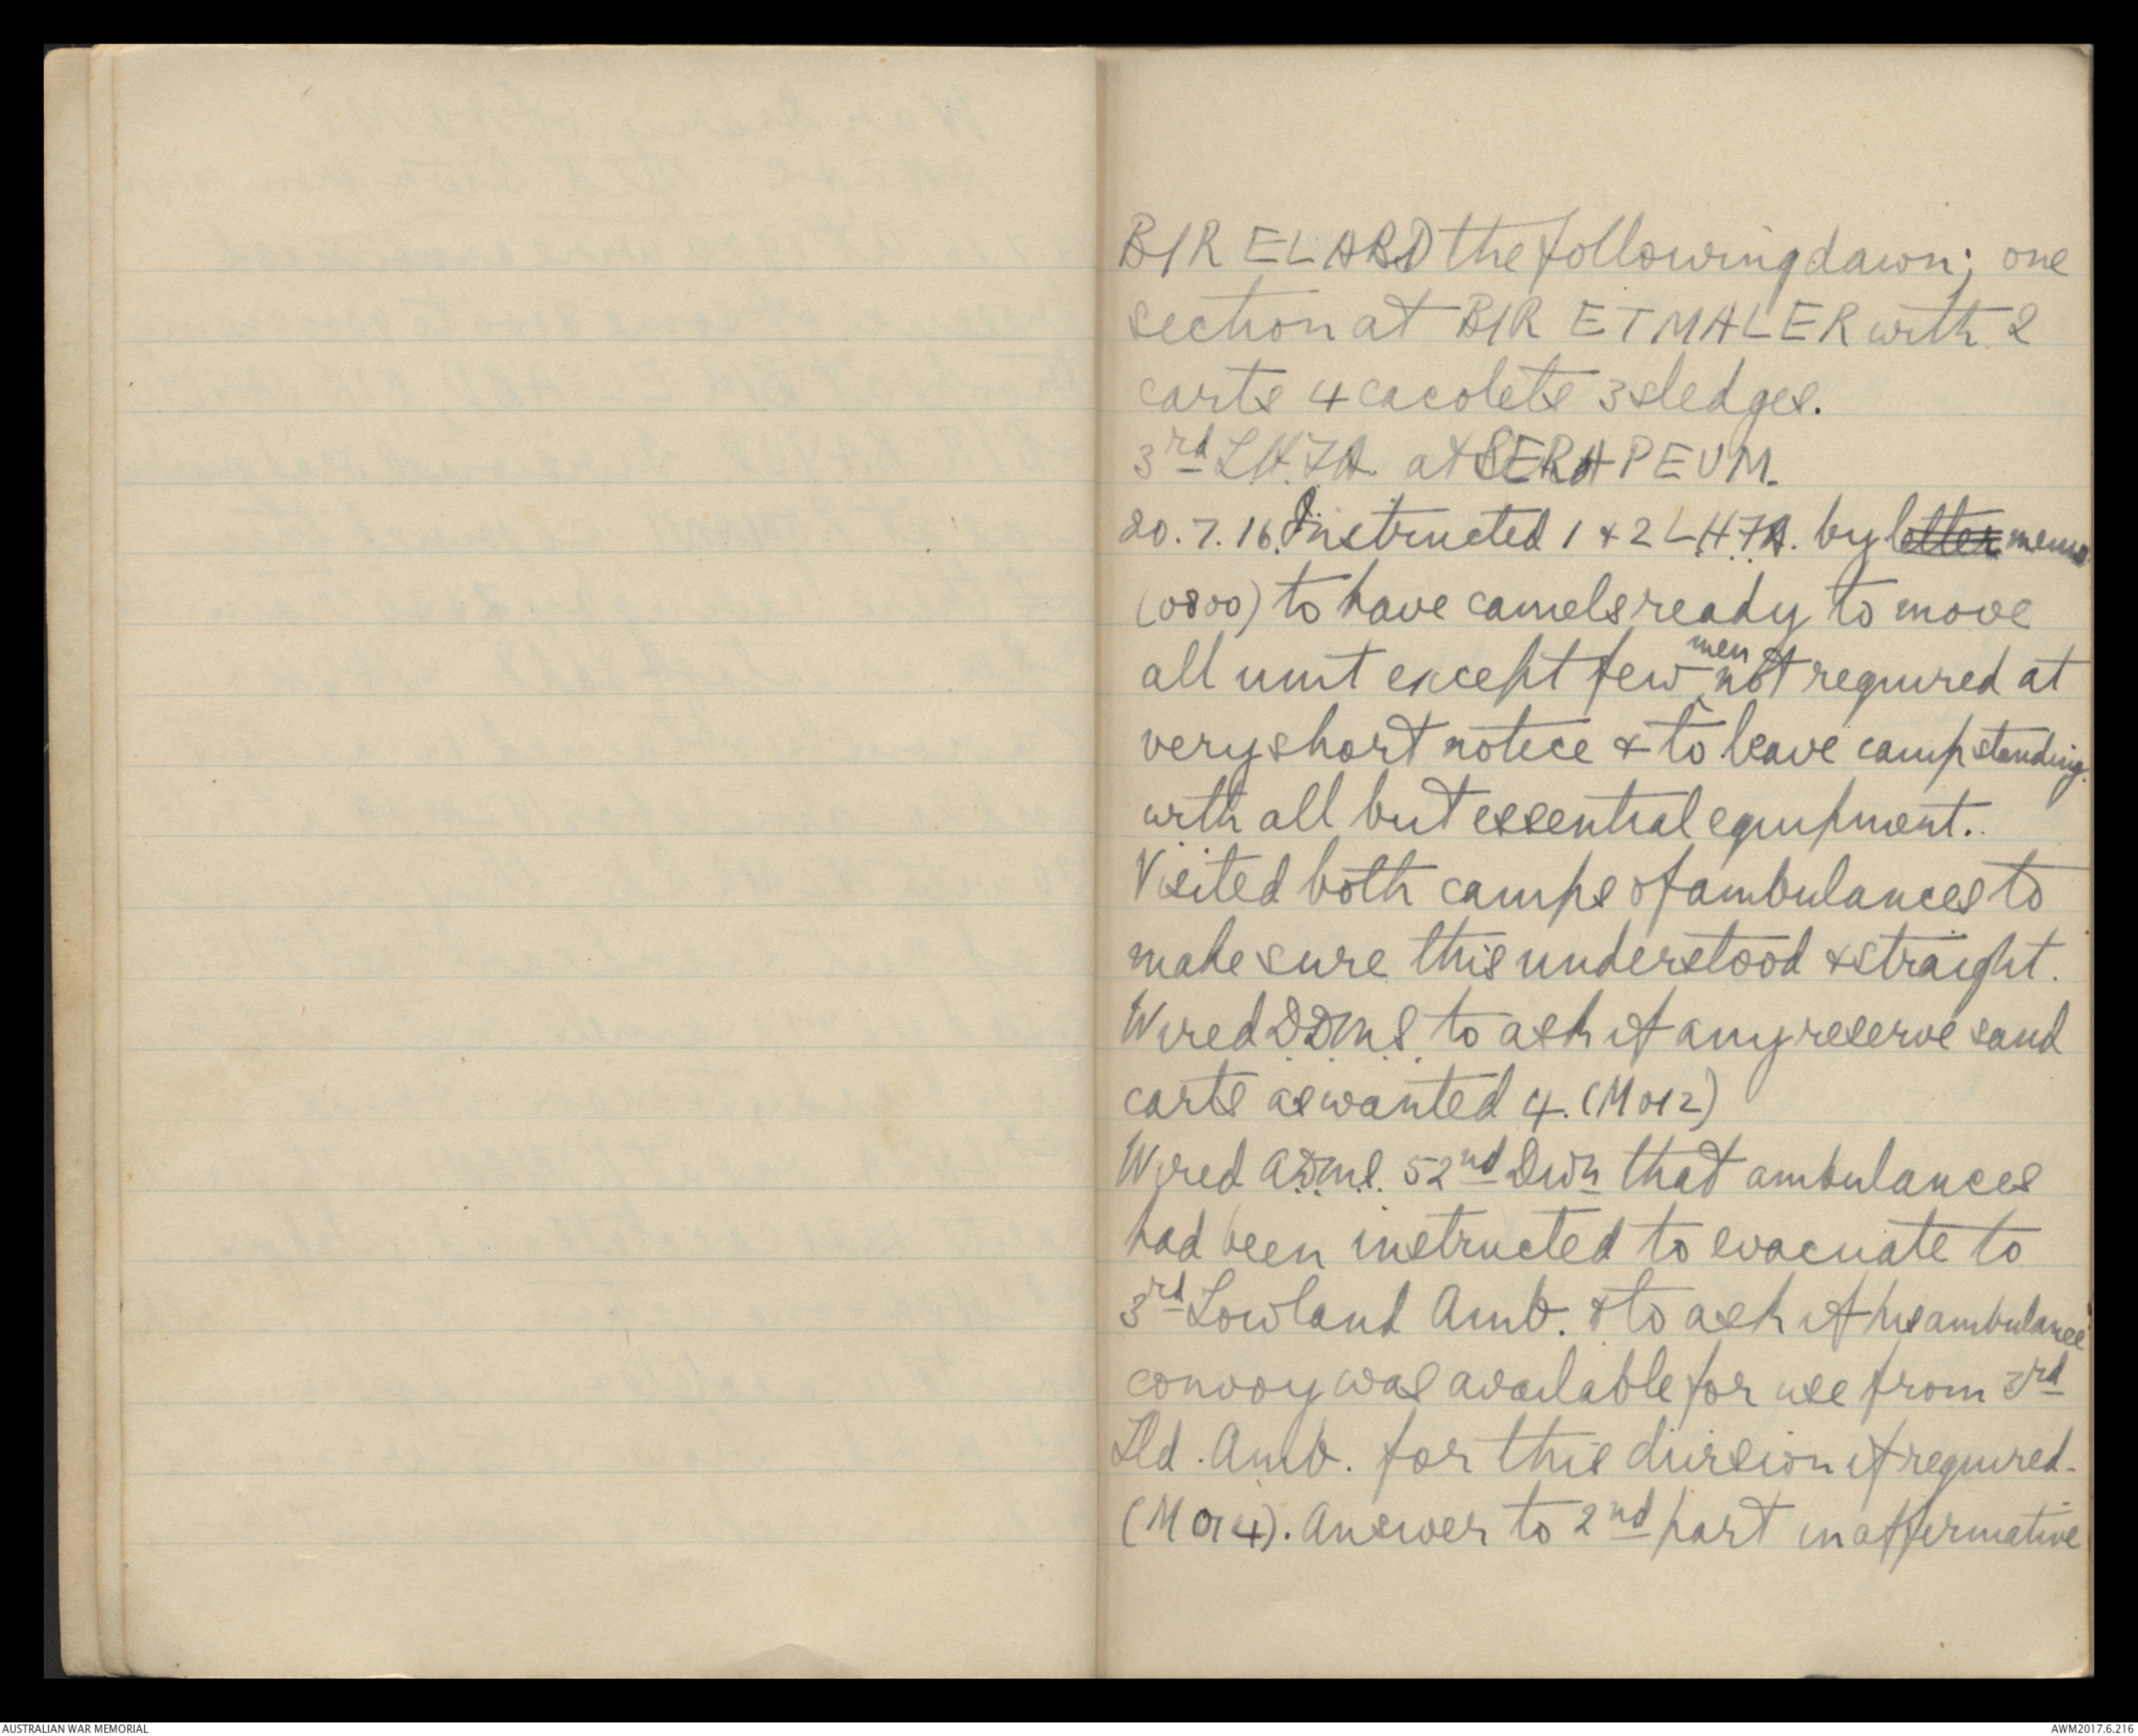 BIR EL ABD the following dawn; one
section at BIR ET MALER with 2
carts 4 cacolets 3 sledges.
3rd L.H.F.A. at SERAPEUM.
20.7.16. Instructed 1 & 2 L.H.F.A. by letter memo
(0800) to have camels ready to move
all unit except few men not required at
very short notice & to leave camp standing.
with all but essential equipment.
Visited both camps of ambulances to
make sure this understood & straight.
Wired D.D.M.S. to ask if any reserve sand
carts as wanted 4. (M012)
Wired A.D.M.S. 52nd Divn that ambulances
had been instructed to evacuate to
3rd Lowland Amb. & to ask if his ambulance
convoy was available for use from 3rd
Lld. Amb. for this division if required.
(M014). Answer to 2nd part in affirmative
AUSTRALIAN WAR MEMORIAL
AWM2017.6.216